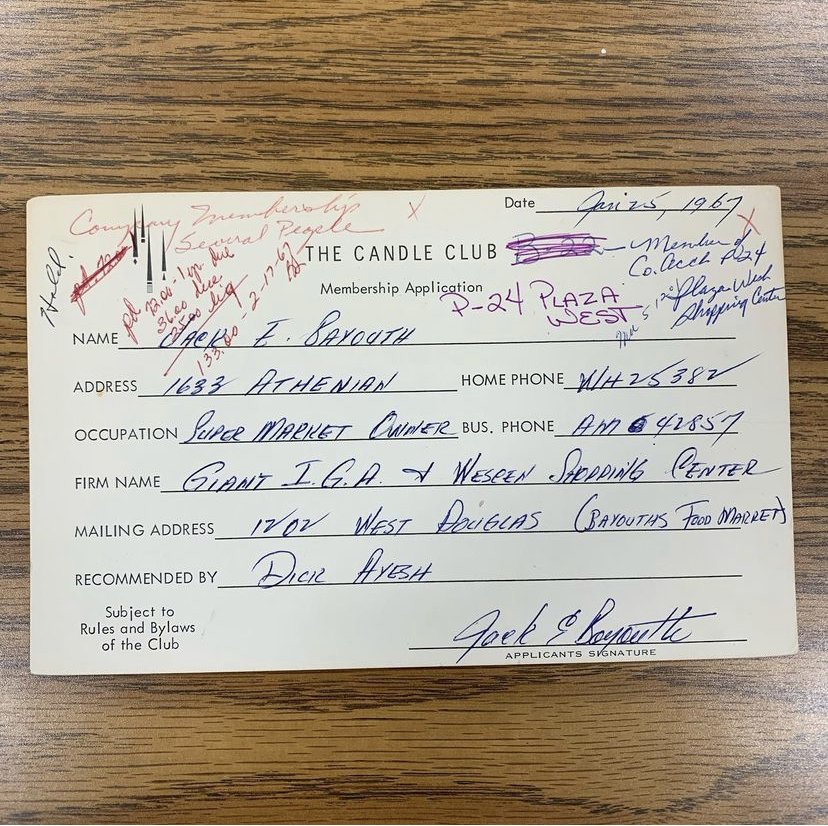 Date Jan 25, 1967
Company Membership X
Several People
Held.
pd
72.00 - 1 yr. due
36.00 due
133.00 - 2-17-67
THE CANDLE CLUB
Member of
Co. Acct P-24
X
Membership Application
P-24 PLAZA
WEST
Plaza West
Shopping Center
NAME JACK E. BAYOUTH
ADDRESS 1633 ATHENIAN HOME PHONE WH25382
OCCUPATION SUPER MARKET OWNER BUS. PHONE AM 42857
FIRM NAME GIANT I.G.A. & SHOPPING CENTER
MAILING ADDRESS 1202 WEST DOUGLAS (BAYOUTHS FOOD MARKET)
RECOMMENDED BY DICK AYESH
Subject to
Rules and Bylaws
of the Club
Jack E Bayouth
APPLICANTS SIGNATURE